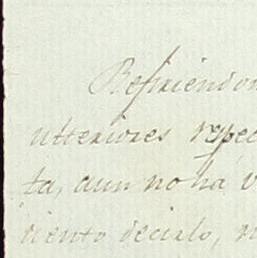 Refiriendom
ulteriores respec
ta, aun no há v
siento decirlo, n